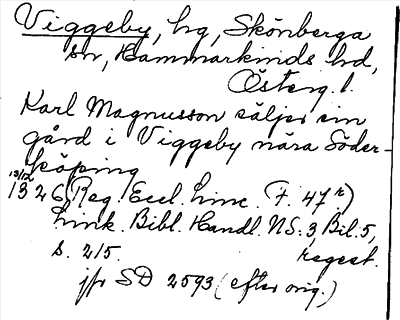 Viggeby, hg, Skönberga
sn, Hammarkinds hd,
Österg. l.
Karl Magnusson säljer sin
gård i Viggeby nära Söder-
köping
13/12
1326 Reg. Eccl. Linc. (f. 47 r)
Link. Bibl. Handl. N.S. 3, Bil. 5,
s. 215. regest.
jfr SD 2593 (efter orig.)